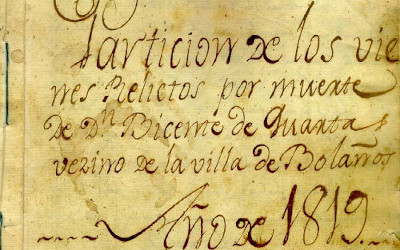 Particion de los vie
nes Relictos por muerte
de Dⁿ Bicente de Huarta
vezino de la villa de Bolaños
Año de 1819.